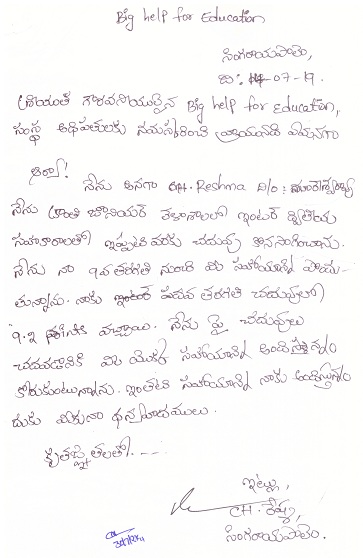 Big help for Education
సింగరాయపాలెం,
ది: 14-07-19.
శ్రీయుత గౌరవనీయులైన Big help for Education,
సంస్థ అధిపతులకు నమస్కరించి వ్రాయునది ఏమనగా
ఆర్యా!
నేను అనగా CH. Reshma D/o:
నేను క్రాంతి జూనియర్ కళాశాలలో ఇంటర్ ద్వితీయ
సహకారాలతో ఇప్పటి వరకు చదువు కొనసాగించాను.
నేను నా 9వ తరగతి నుంచి మీ సహాయాన్ని పొందు
తున్నాను. నాకు పదవ తరగతి చదువులో
9.2 వచ్చాయి. నేను పై చదువులు
చదవడానికి మీ యొక్క సహాయాన్ని
కోరుకుంటున్నాను. ఇంతటి సహాయాన్ని నాకు అందిస్తున్నం
దుకు మీకునా ధన్యవాదములు.
కృతజ్ఞతలతో....
ఇట్లు,
CH. రేష్మ,
సింగరాయపాలెం.